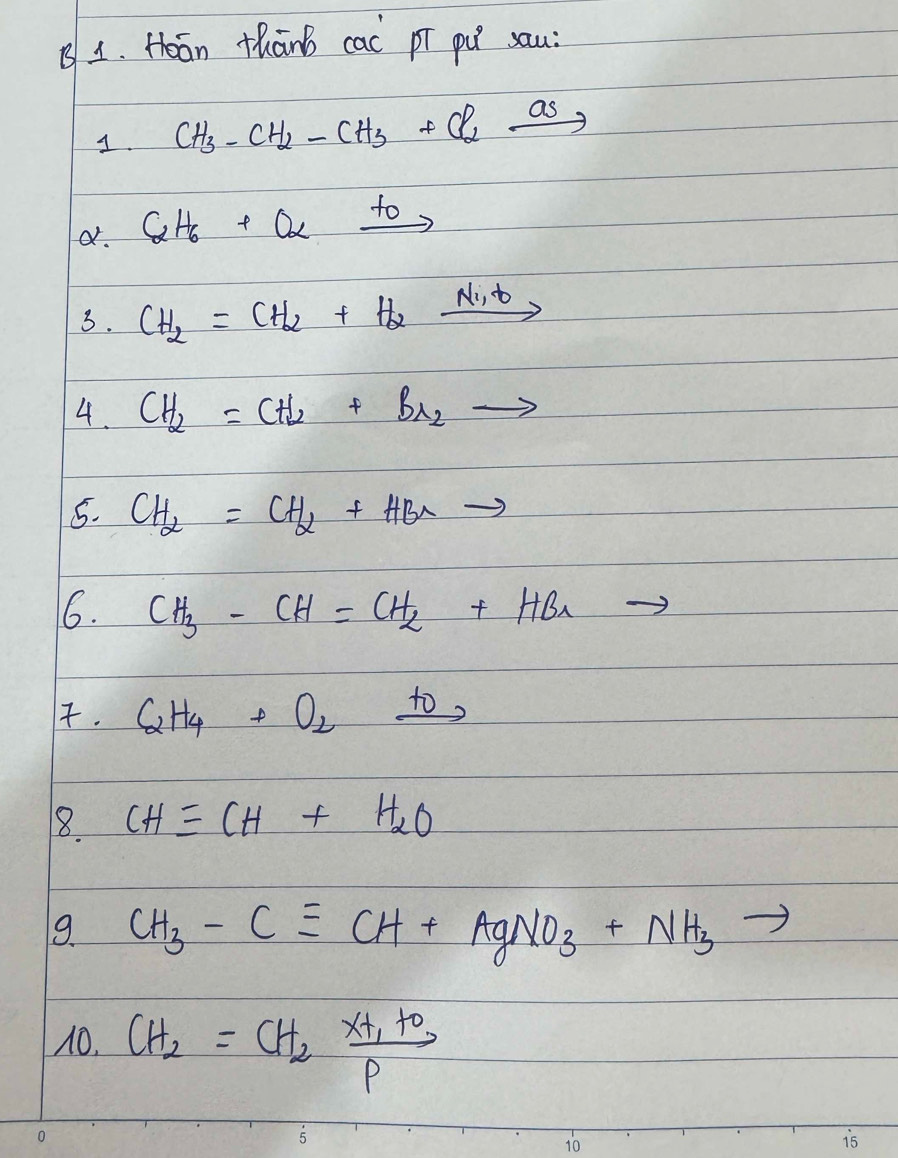 B1. Hoãn thành các PT pứ sau:
1. CH3 - CH2 - CH3 + Cl2 as→
2. C2H6 + O2 to→
3. CH2 = CH2 + H2 Ni,to→
4. CH2 = CH2 + Br2 →
5. CH2 = CH2 + HBr →
6. CH3 - CH = CH2 + HBr →
7. C2H4 + O2 to→
8. CH ≡ CH + H2O
9. CH3 - C ≡ CH + AgNO3 + NH3 →
10. CH2 = CH2 xt, to, P→
0 5 10 15